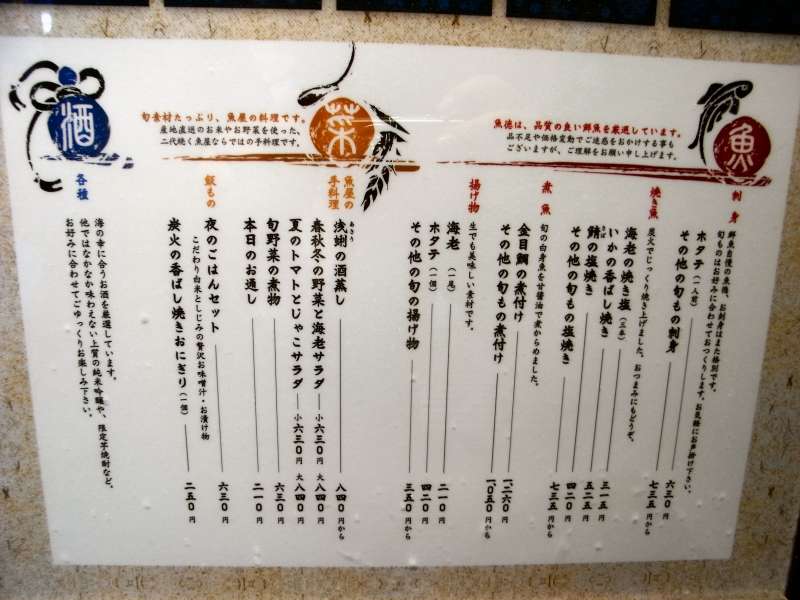 魚
魚徳は、品質の良い鮮魚を厳選しています。
品不足や価格変動でご迷惑をおかけする事も
ございますが、ご理解をお願い申し上げます。
刺身
鮮魚自慢の魚徳、お刺身はまた格別です。
旬ものはお好みに合わせておつくりします。お気軽にお声掛け下さい。
ホタテ(一人前) 六三〇円
その他の旬もの刺身 七三五円から
焼き魚
炭火でじっくり焼き上げました。おつまみにもどうぞ。
海老の焼き塩(三本) 三一五円
いかの香ばし焼き 五二五円
鯖の塩焼き 四二〇円
さば
その他の旬もの塩焼き 七三五円から
煮魚
旬の白身魚を甘醤油で煮からめました。
金目鯛の煮付け 一、二六〇円
その他の旬もの煮付け 一、〇五〇円から
揚げ物
生でも美味しい素材です。
海老(一尾) 二一〇円
ホタテ(一個) 四二〇円
その他の旬の揚げ物 三五〇円から
菜
旬素材たっぷり、魚屋の料理です。
産地直送のお米やお野菜を使った、
二代焼く魚屋ならではの手料理です。
魚屋の
手料理
浅蜊の酒蒸し 八四〇円から
あさり
春秋冬の野菜と海老サラダ 小 六三〇円 大 八四〇円
夏のトマトとじゃこサラダ 小 六三〇円 大 八四〇円
旬野菜の煮物 六三〇円
本日のお通し 二一〇円
飯もの
夜のごはんセット 六三〇円
こだわり白米としじみの贅沢お味噌汁・お漬け物
炭火の香ばし焼きおにぎり(一個) 二五〇円
酒
各種
海の幸に合うお酒を厳選しています。
他ではなかなか味わえない上質の純米吟醸や、限定芋焼酎など、
お好みに合わせてごゆっくりお楽しみ下さい。